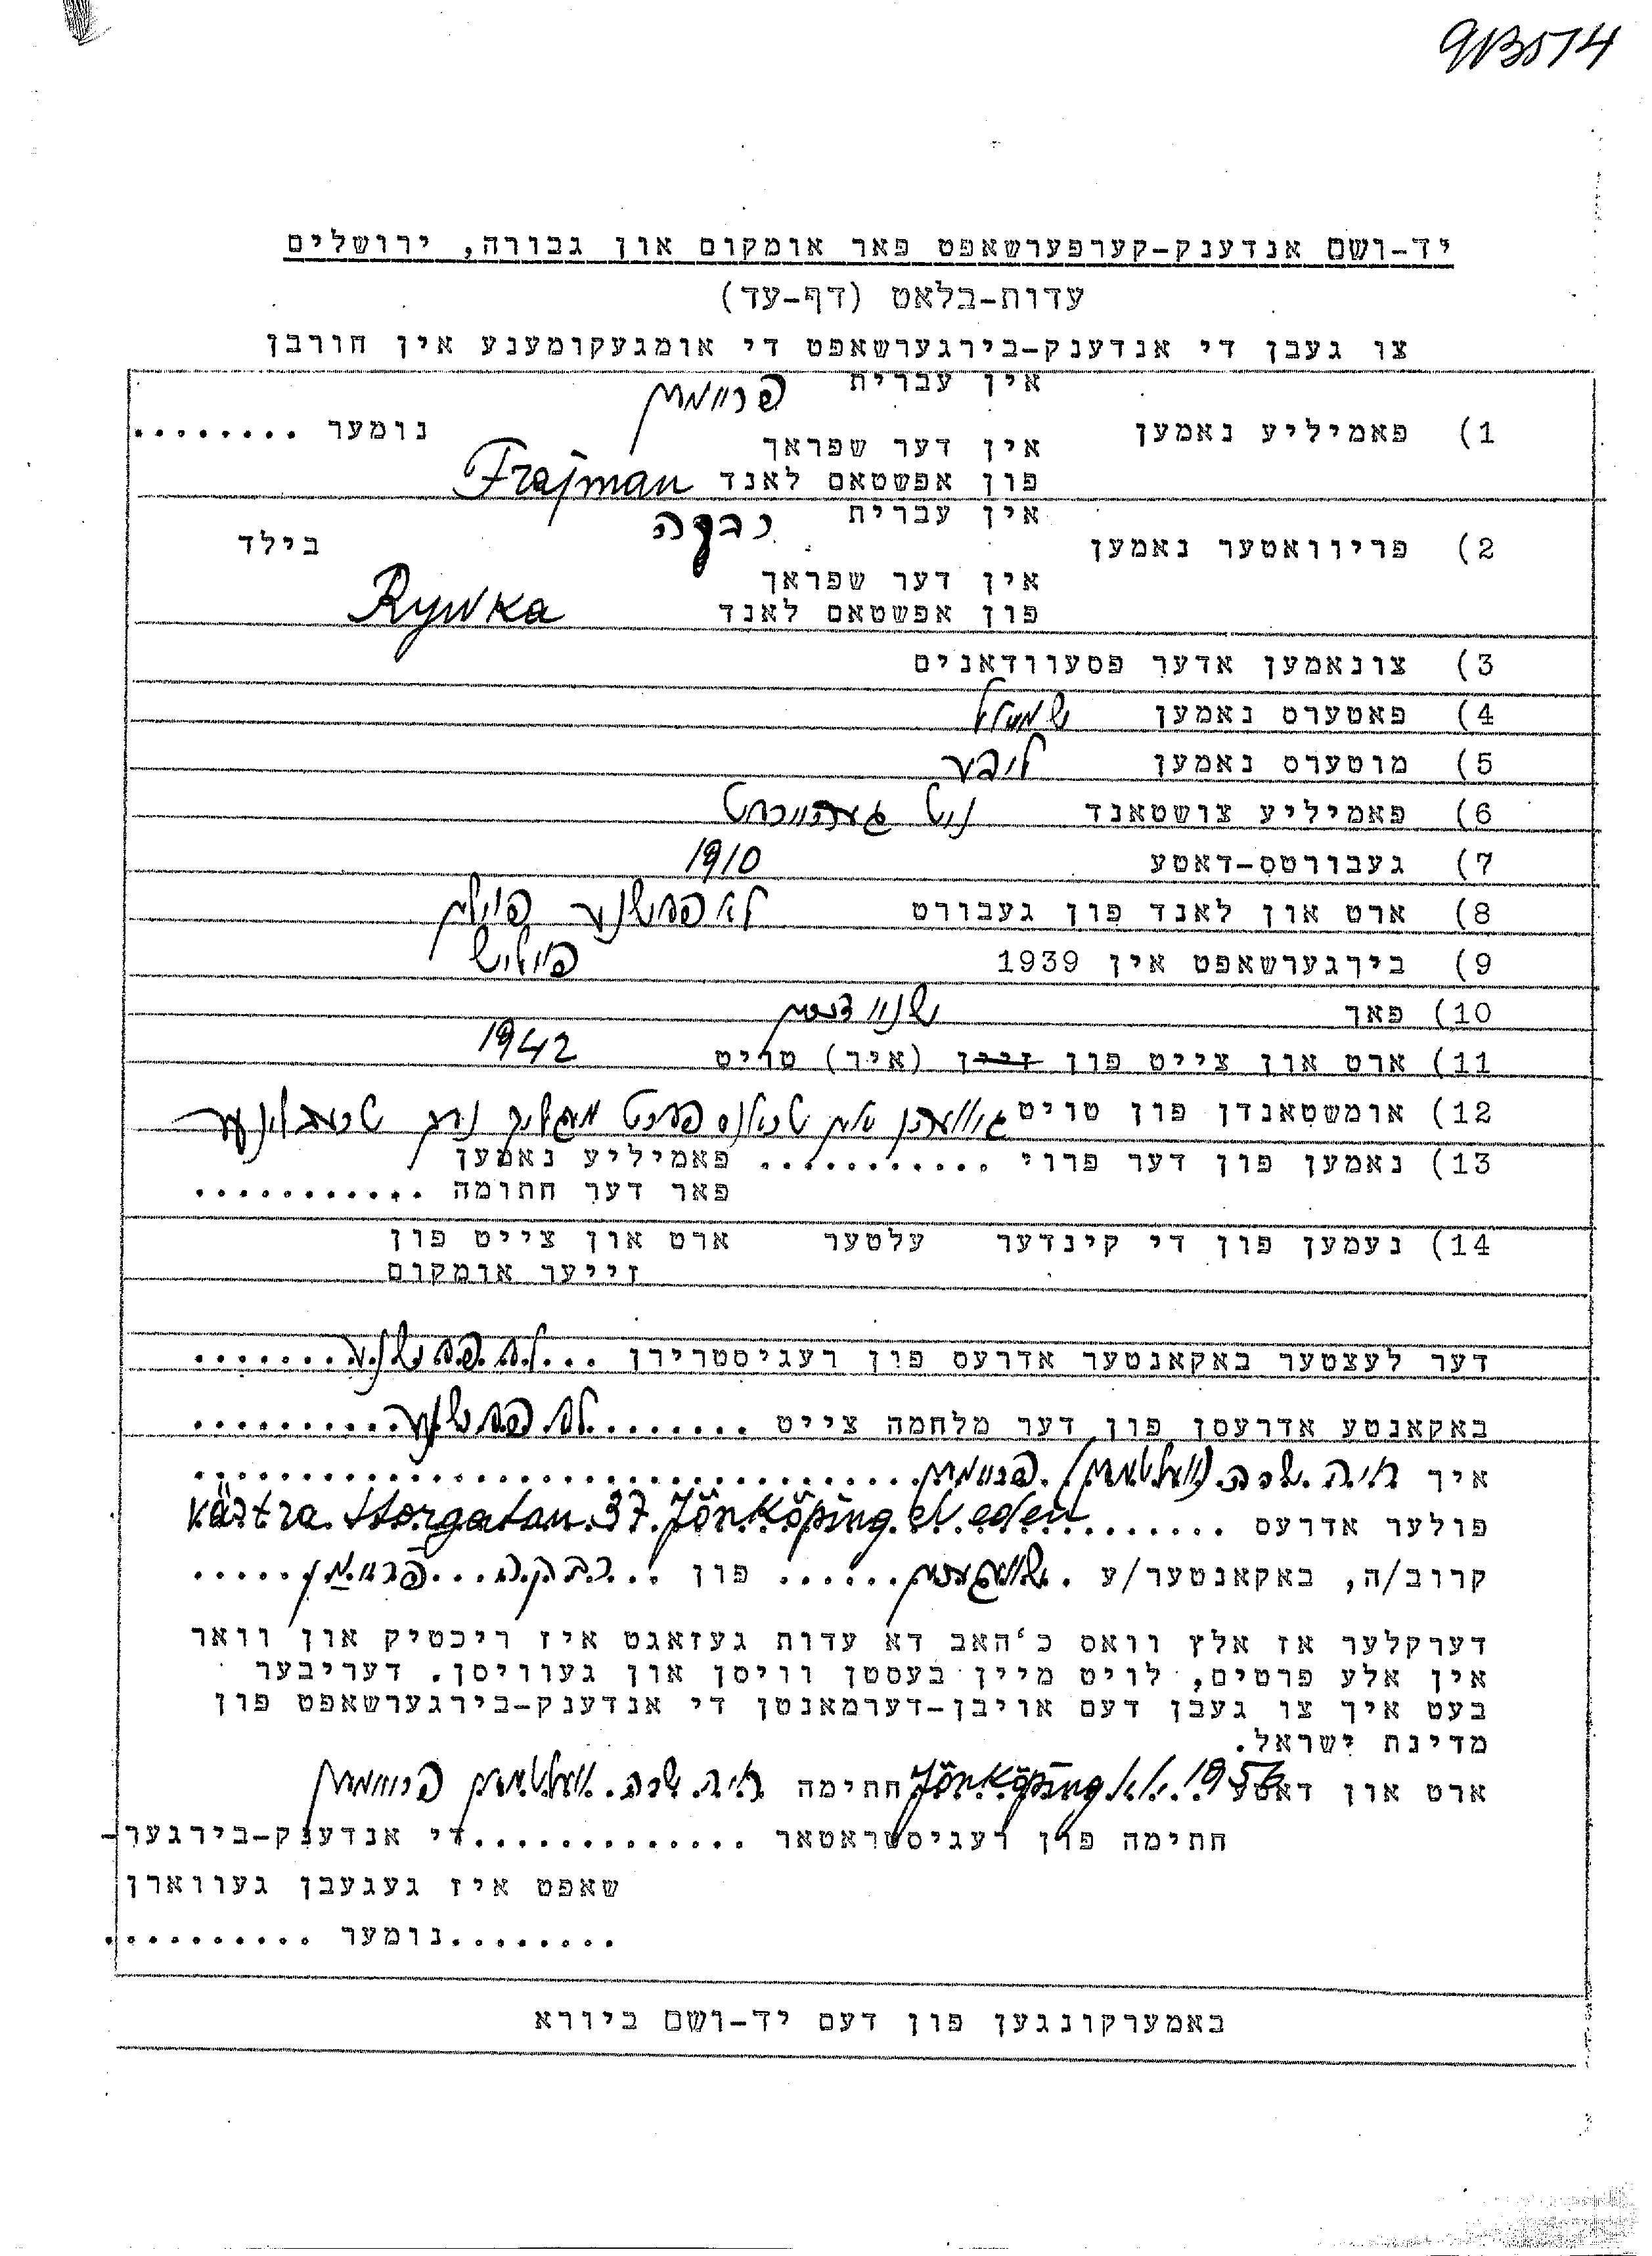 913574
יד-ושם אנדענק-קערפערשאפט פאר אומקום און גבורה, ירושלים
עדות-בלאט (דף-עד)
צו געבן די אנדענק-בירגערשאפט די אומגעקומענע אין חורבן
אין עברית פריימאן
1) פאמיליע נאמען נומער ........
אין דער שפראך
פון אפשטאם לאנד Frajman
אין עברית רבקה
2) פריוואטער נאמען בילד
אין דער שפראך
פון אפשטאם לאנד Rywka
3) צונאמען אדער פסעוודאנים
4) פאטערס נאמען שמואל
5) מוטערס נאמען ליבע
6) פאמיליע צושטאנד ניט
7) געבורטס-דאטע 1910
8) ארט און לאנד פון געבורט פוילן
9) בירגערשאפט אין 1939 פויליש
10) פאך שניידערין
11) ארט און צייט פון זיין (איר) טויט 1942
12) אומשטאנדן פון טויט
13) נאמען פון דער פרוי ........... פאמיליע נאמען
פאר דער חתונה ...........
14) נעמען פון די קינדער עלטער ארט און צייט פון
זייער אומקום
דער לעצטער באקאנטער אדרעס פון רעגיסטרירן
באקאנטע אדרעסן פון דער מלחמה צייט
איך חיה שרה (וועלטמאן) פריימאן
פולער אדרעס Västra Storgatan 37 Jönköping
קרוב/ה, באקאנטער/ע שוועגערין פון רבקה פריימאן
דערקלער אז אלץ וואס כ'האב דא עדות געזאגט איז ריכטיק און וואר
אין אלע פרטים, לויט מיין בעסטן וויסן און געוויסן. דעריבער
בעט איך צו געבן דעם אויבן-דערמאנטן די אנדענק-בירגערשאפט פון
מדינת ישראל.
ארט און דאטע Jönköping חתימה חיה שרה וועלטמאן פריימאן
חתימה פון רעגיסטראטאר .............די אנדענק-בירגער-
שאפט איז געגעבן געווארן
........נומער ..........
באמערקונגען פון דעם יד-ושם ביורא